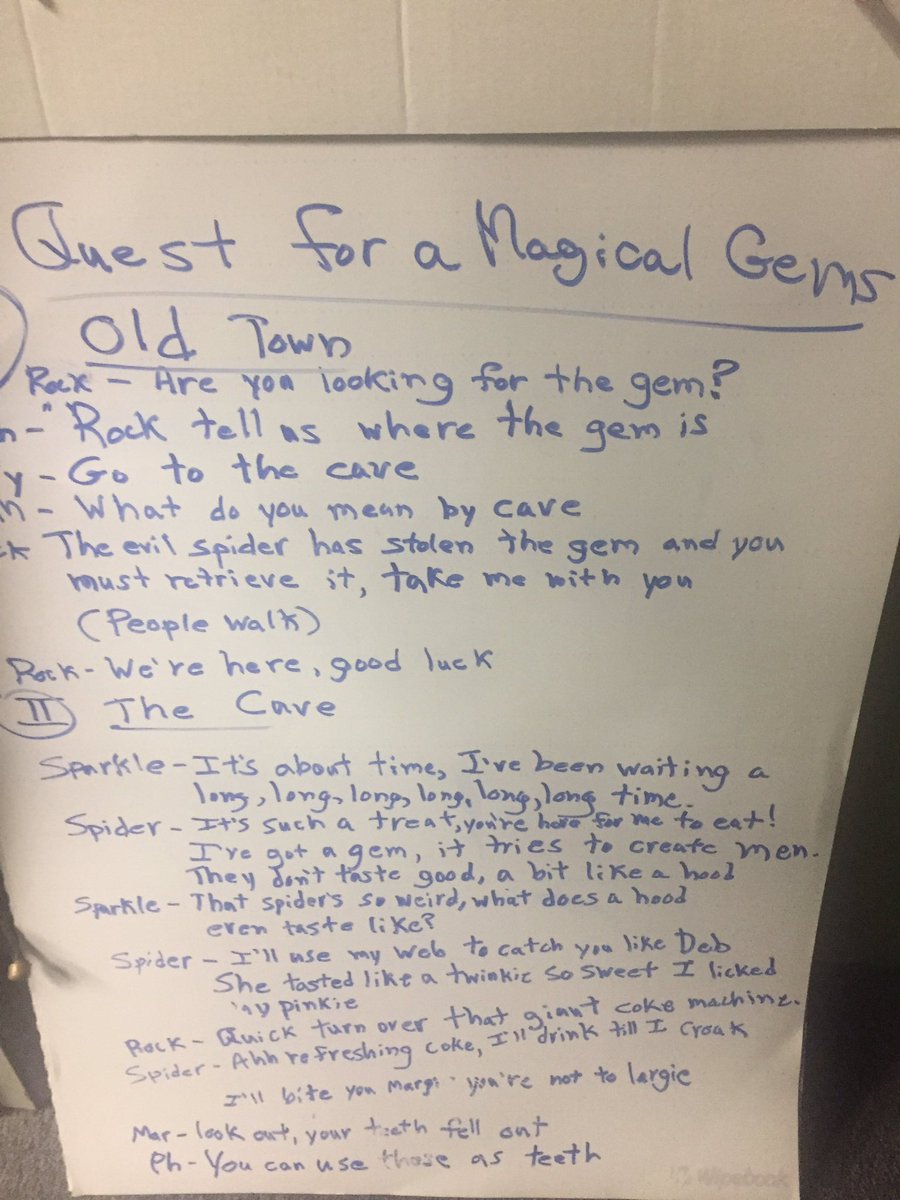 Quest for a Magical Gems
Old Town
Rock - Are you looking for the gem?
n - "Rock tell us where the gem is
y - Go to the cave
n - What do you mean by cave
ck The evil spider has stolen the gem and you
must retrieve it, take me with you
(People walk)
Rock - We're here, good luck
II The Cave
Sparkle - It's about time, I've been waiting a
long, long, long, long, long, long time.
Spider - It's such a treat, you're here for me to eat!
I've got a gem, it tries to create men.
They don't taste good, a bit like a hood
Sparkle - That spider's so weird, what does a hood
even taste like?
Spider - I'll use my web to catch you like Deb
She tasted like a twinkie so sweet I licked
my pinkie
Rock - Quick turn over that giant coke machine.
Spider - Ahh refreshing coke, I'll drink till I croak
I'll bite you Margi you're not to largie
Mar - look out, your teeth fell out
Ph - You can use those as teeth
Wipebook